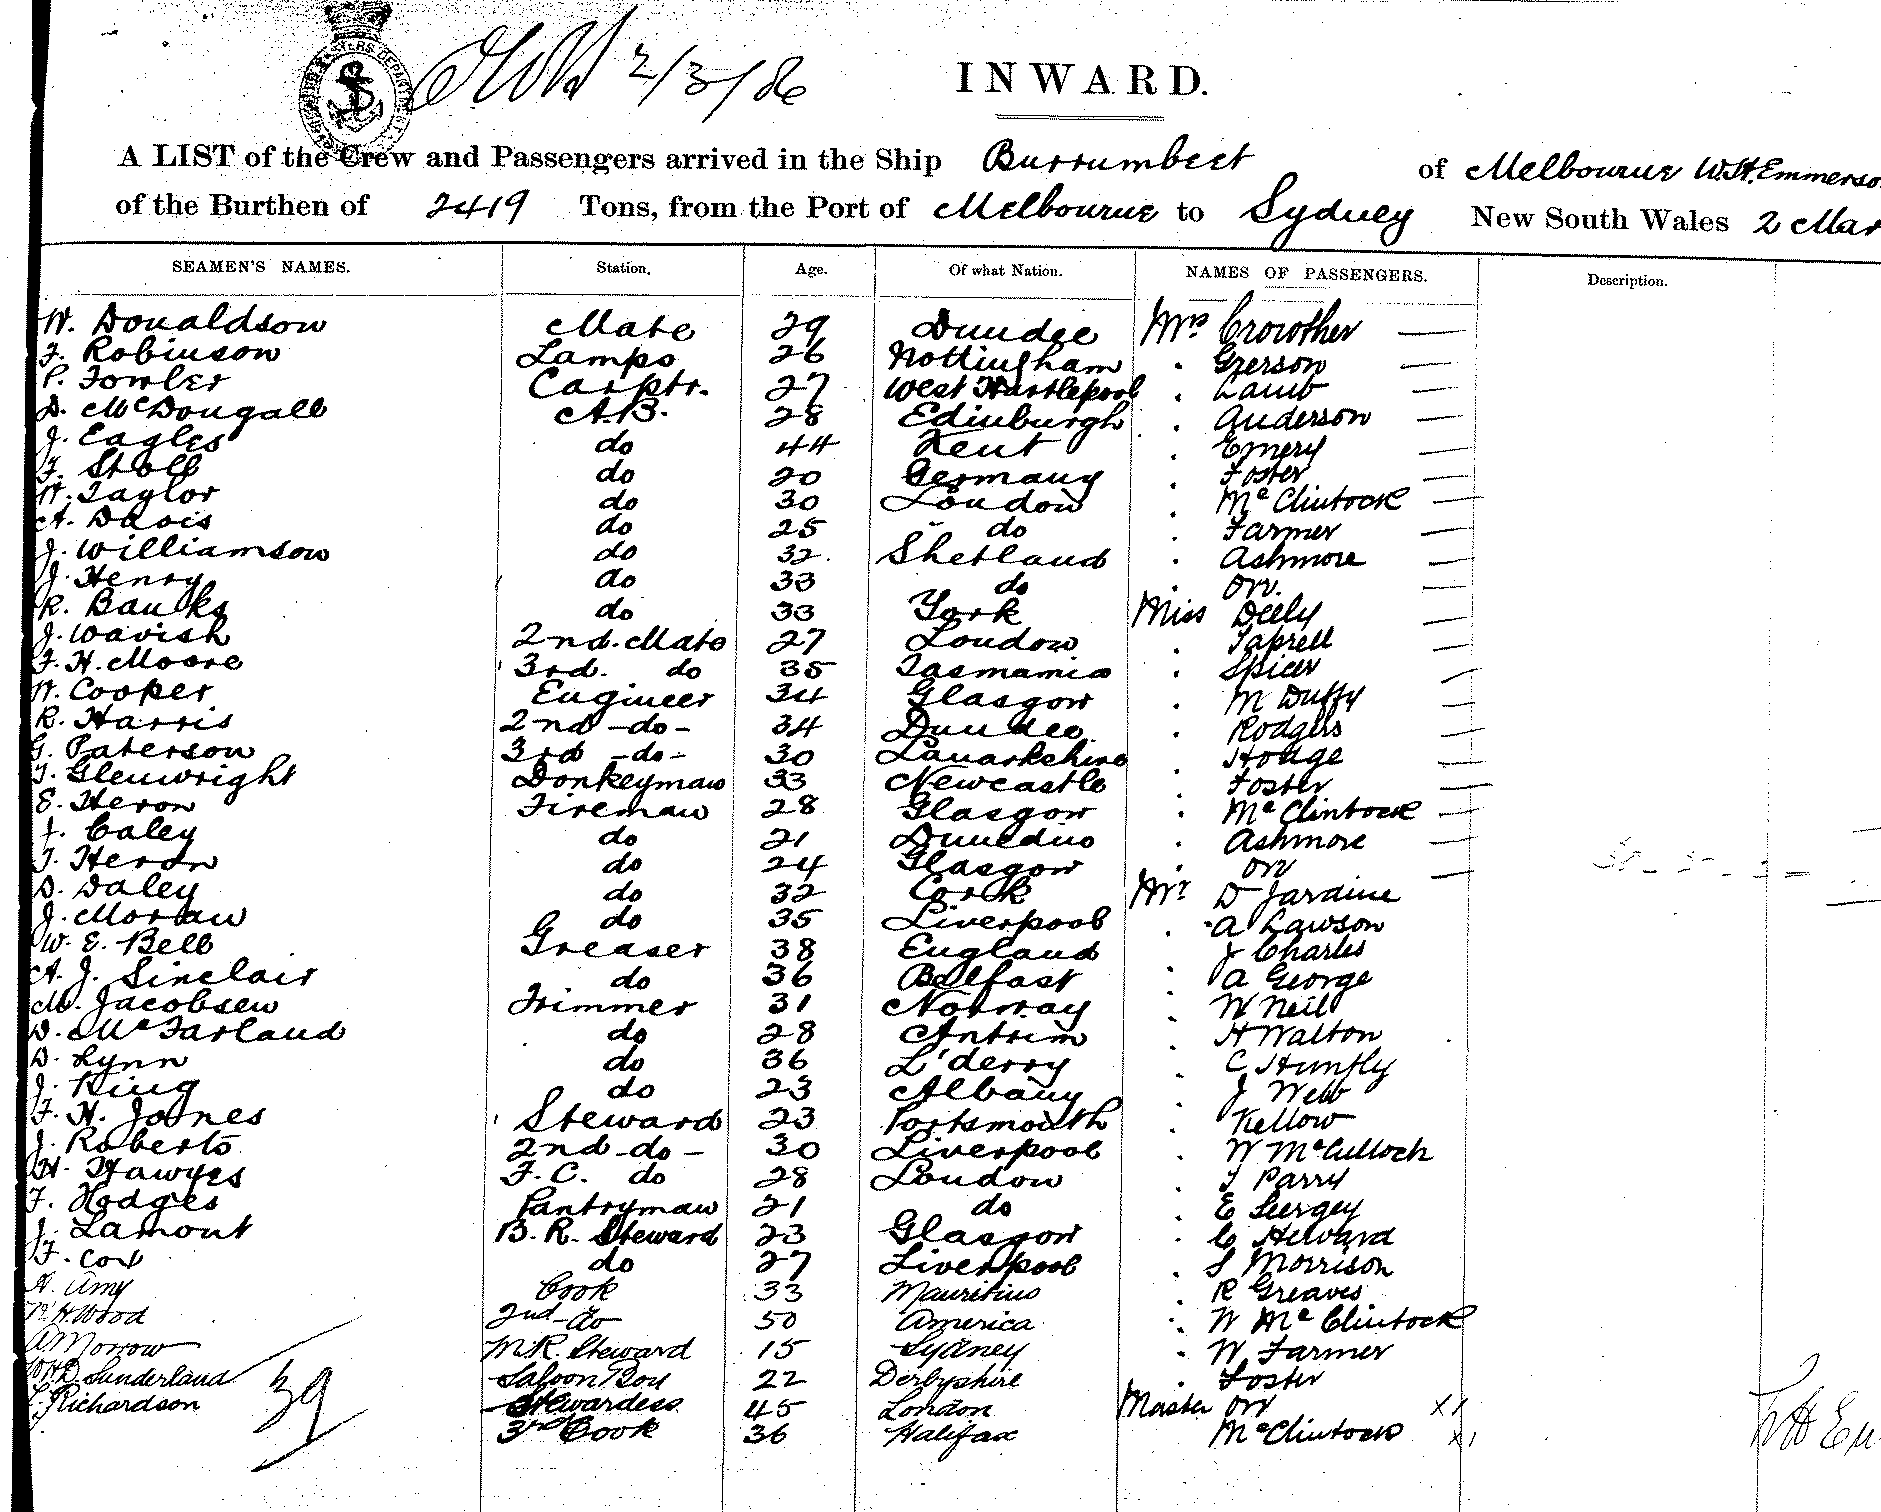 2/3/86
INWARD.
A LIST of the Crew and Passengers arrived in the Ship Burrumbeet of Melbourne W.H. Emmerso
of the Burthen of 2419 Tons, from the Port of Melbourne to Sydney New South Wales 2 Mar
SEAMEN'S NAMES. Station. Age. Of what Nation. NAMES OF PASSENGERS. Description.
W. Donaldson Mate 29 Dundee Mrs Crowther
F. Robinson Lamps 26 Nottingham . Grerson
P. Fowler Carptr. 27 West Hartlepool . Lamb
D. McDougall A.B. 28 Edinburgh . Anderson
J. Eagles do 44 Kent . Emery
F. Stoll do 20 Germany . Foster
W. Taylor do 30 London . McClintock
A. Davis do 25 do . Farmer
J. Williamson do 32 Shetland . Ashmore
J. Henry do 33 do . Orr.
R. Banks do 33 York Miss Deely
J. Wavish 2nd. Mate 27 London . Taprell
F. H. Moore 3rd. do 35 Tasmania . Spicer
W. Cooper Engineer 34 Glasgow . M Duffy
R. Harris 2nd -do- 34 Dundee . Rodgers
G. Paterson 3rd -do- 30 Lanarkshire . Hodge
T. Glenwright Donkeyman 33 Newcastle . Foster
E. Heron Fireman 28 Glasgow . McClintock
J. Caley do 21 Dunedin . Ashmore
T. Heron do 24 Glasgow . Orr
D. Daley do 32 Cork Mr D Jardine
J. Moran do 35 Liverpool . A Lawson
W. E. Bell Greaser 38 England . J Charles
A. J. Sinclair do 36 Belfast . A George
M. Jacobsen Trimmer 31 Norway . W Neil
D. McFarland do 28 Antrim . H Walton
D. Lynn do 36 L'derry . C Huntly
J. King do 23 Albany . J Webb
F. H. Joines Steward 23 Portsmouth . Kellow
J. Roberts 2nd -do- 30 Liverpool . W McCulloch
H. Hawyes F.C. do 28 London . T Parry
F. Hodges Pantryman 21 do . E
J. Lamont B.R. Steward 23 Glasgow . C Heward
F. Cox do 27 Liverpool . S Morrison
H. Amy Cook 33 Mauritius . R Greaves
W. H. Wood 2nd do 50 America . W McClintock
A Morrow M.R. Steward 15 Sydney . W Farmer
W H D Sunderland Saloon Boy 22 Derbyshire . Foster
Richardson Stewardess 45 London Master Orr X1
39 3rd Cook 36 Halifax McClintock X1
W H Em